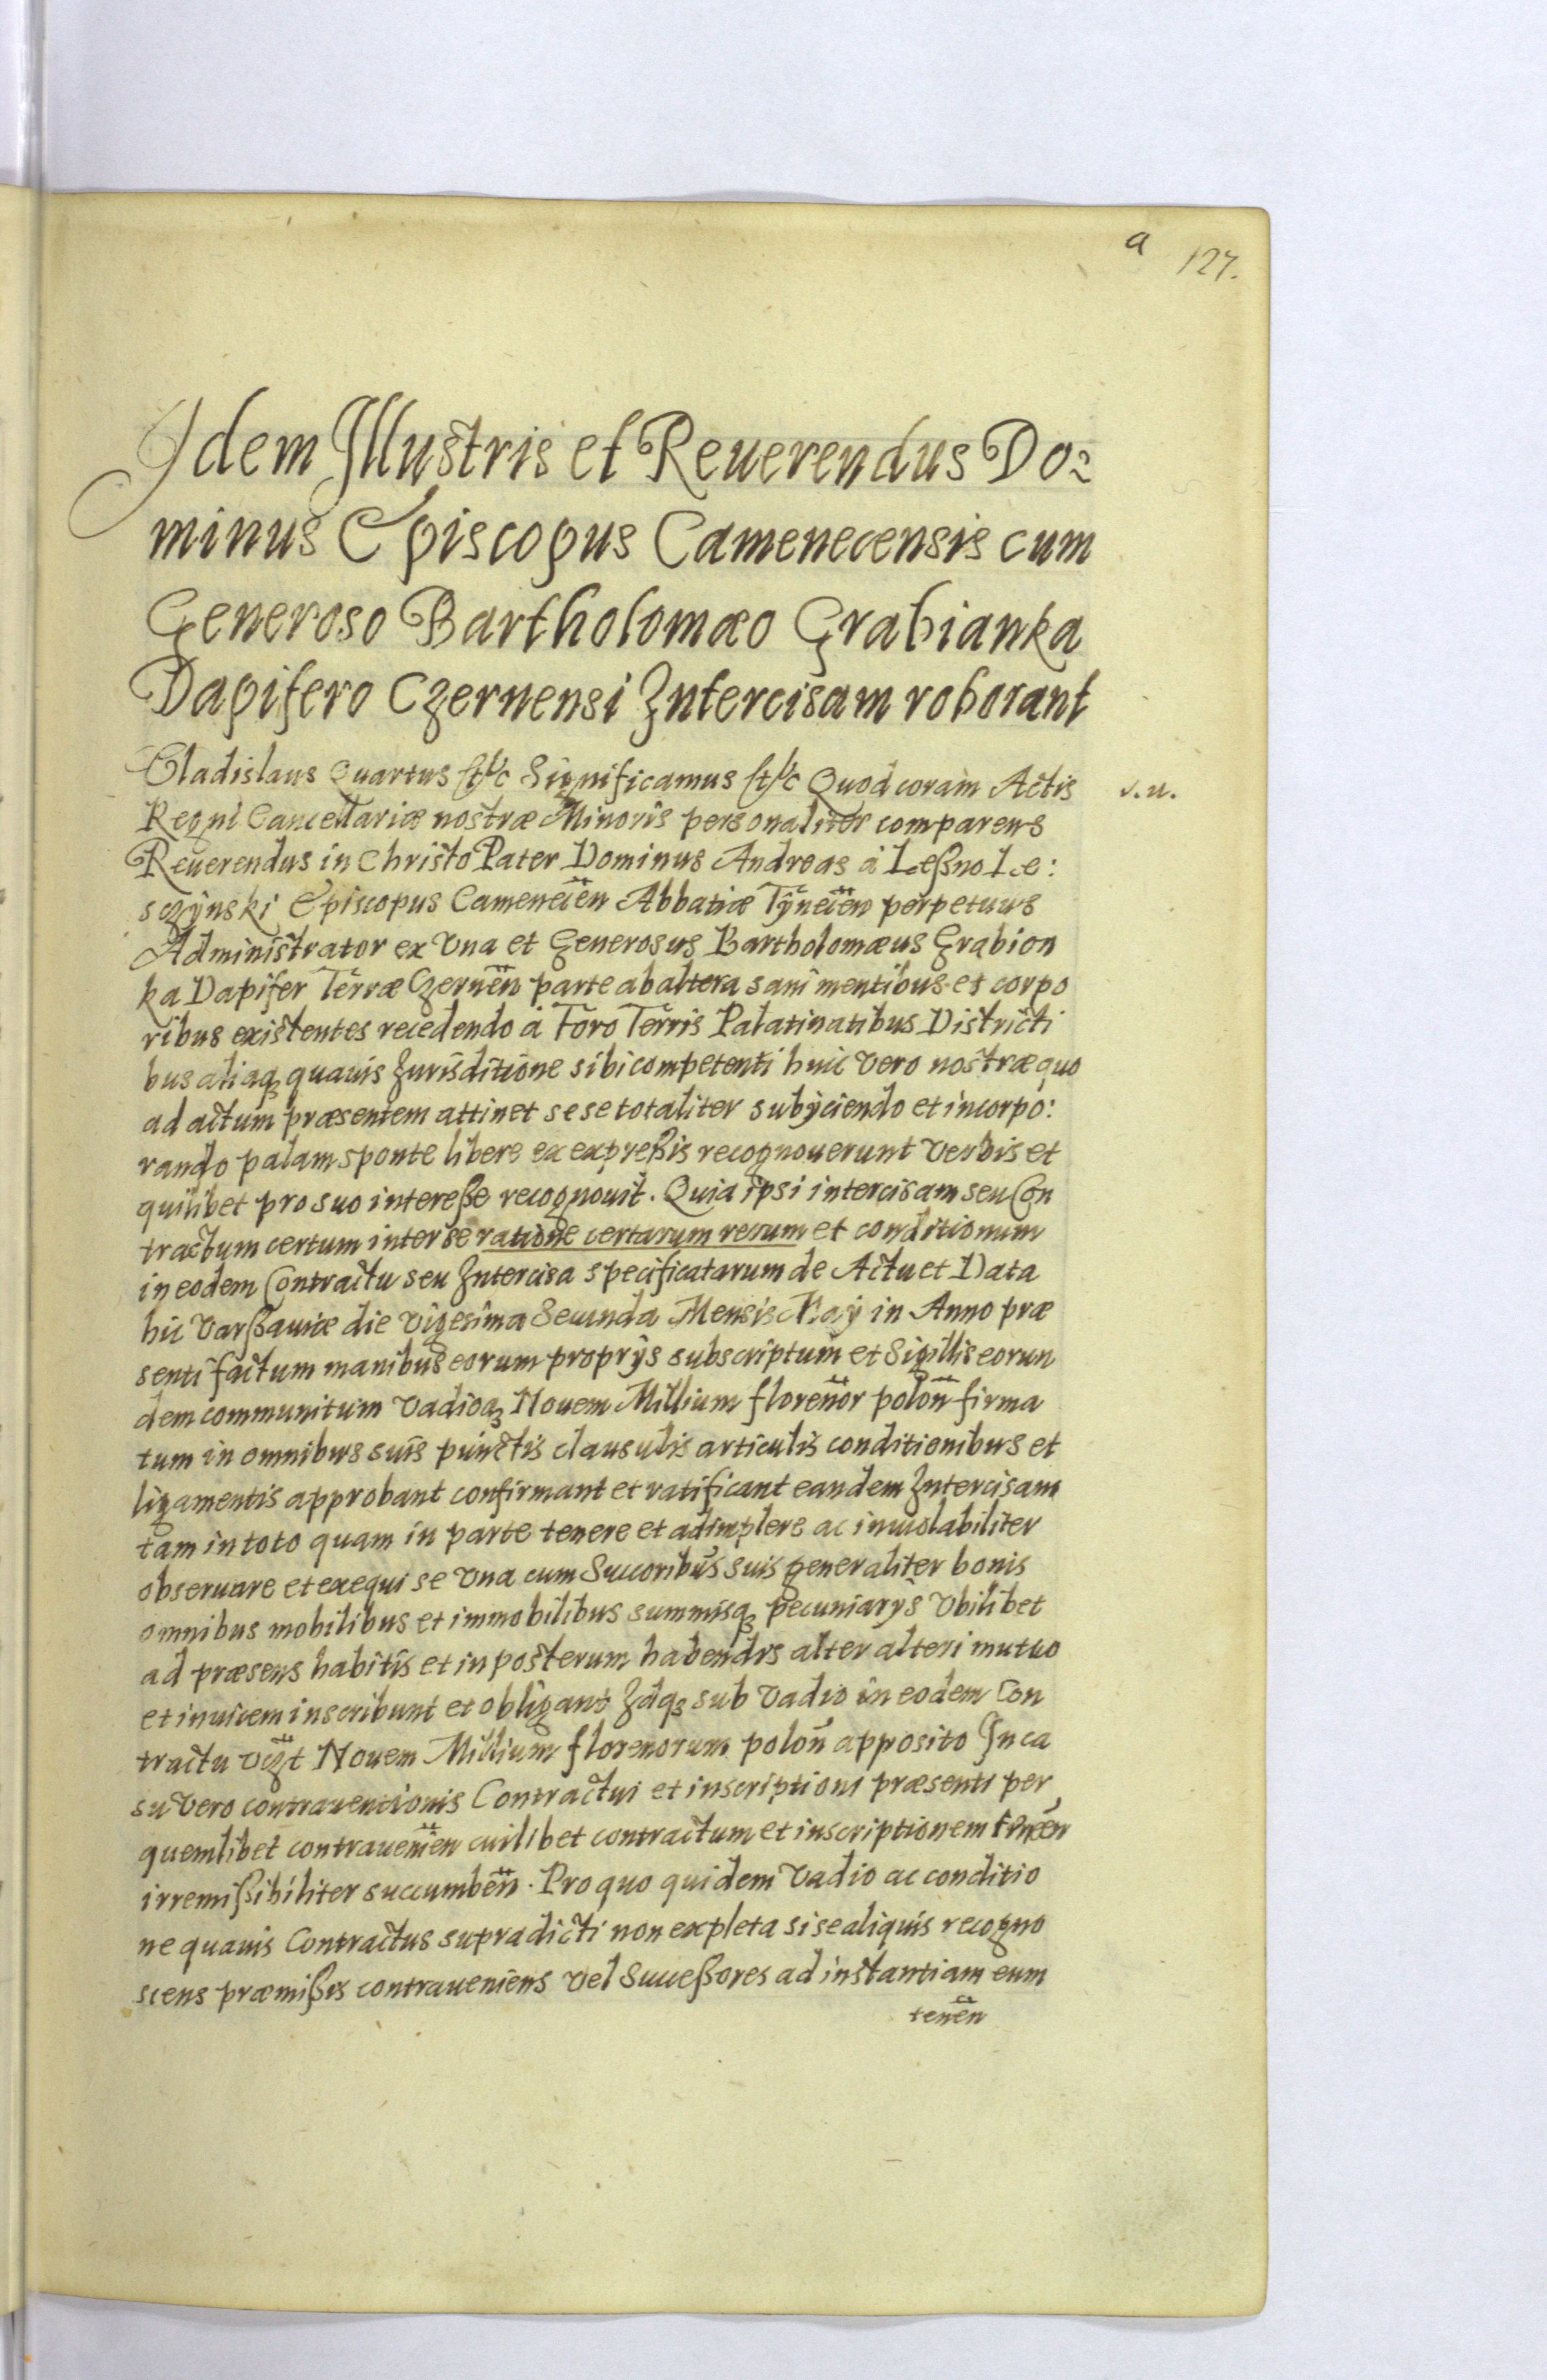 a 127.
Idem Illustris et Reuerendus Do:
minus Episcopus Camenecensis cum
Generoso Bartholomæo Grabianka
Dapifero Czernensi Intercisam roborant
Vladislaus Quartus Significamus Quod coram Actis v. u.
Regni Cancellariæ nostræ Minoris personaliter comparens
Reuerendus in Christo Pater Dominus Andreas à Leßno Le:
sczÿnski Episcopus Camenecien̄ Abbatiæ Tÿnecien̄ perpetuus
Administrator ex Vna et Generosus Bartholomæus Grabion
ka Dapifer Terræ Czernen̄ parte ab altera sani mentibus et corpo
ribus existentes recedendo à Foro Terris Palatinatibus Districti
bus aliaqꝫ quauis Jurisditione sibi competenti huic vero nostræ quo
ad actum præsentem attinet sese totaliter subÿciendo et incorpo:
rando palam sponte libere ex expreßis recognouerunt verbis et
quilibet pro suo intereße recognouit. Quia ipsi intercisam seu Con
tractum certum inter se ratione certarum rerum et conditionum
in eodem Contractu seu Intercisa specificatarum de Actu et Data
hic Varßauiæ die vigesima Secunda Mensis Maÿ in Anno præ
senti factum manibus eorum proprÿs subscriptum et Sigillis eorun
dem communitum vadioqꝫ Nouem Millium floren̄or polon̄ firma
tum in omnibus suis punctis clausulis articulis conditionibus et
ligamentis approbant confirmant et ratificant eandem Intercisam
tam in toto quam in parte tenere et adimplere ac inuiolabiliter
obseruare et exequi se vna cum Succoribus suis generaliter bonis
omnibus mobilibus et immobilibus summisqꝫ pecuniarÿs vbilibet
ad præsens habitis et in posterum habendis alter alteri mutuo
et inuicem inscribunt et obligant Idqꝫ sub vadio in eodem Con
tractu vczt Nouem Millium florenorum polon̄ apposito In ca
su vero contrauentionis Contractui et inscriptioni præsenti per
quemlibet contrauenien̄ cuilibet contractum et inscriptionem tenen̄
irremißibiliter succumben̄. Pro quo quidem vadio ac conditio
ne quauis Contractus supradicti non expleta si se aliquis recogno
scens præmißis contraueniens vel Succeßores ad instantiam eum
tenen̄